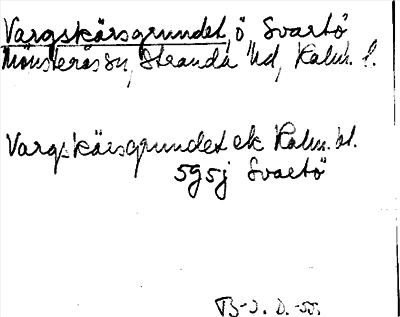 Vargskärsgrundet, ö, Svartö
Mönsterås sn, Stranda hd, Kalm. l.
Vargskärsgrundet ek Kalm. bl.
5g5j Svartö